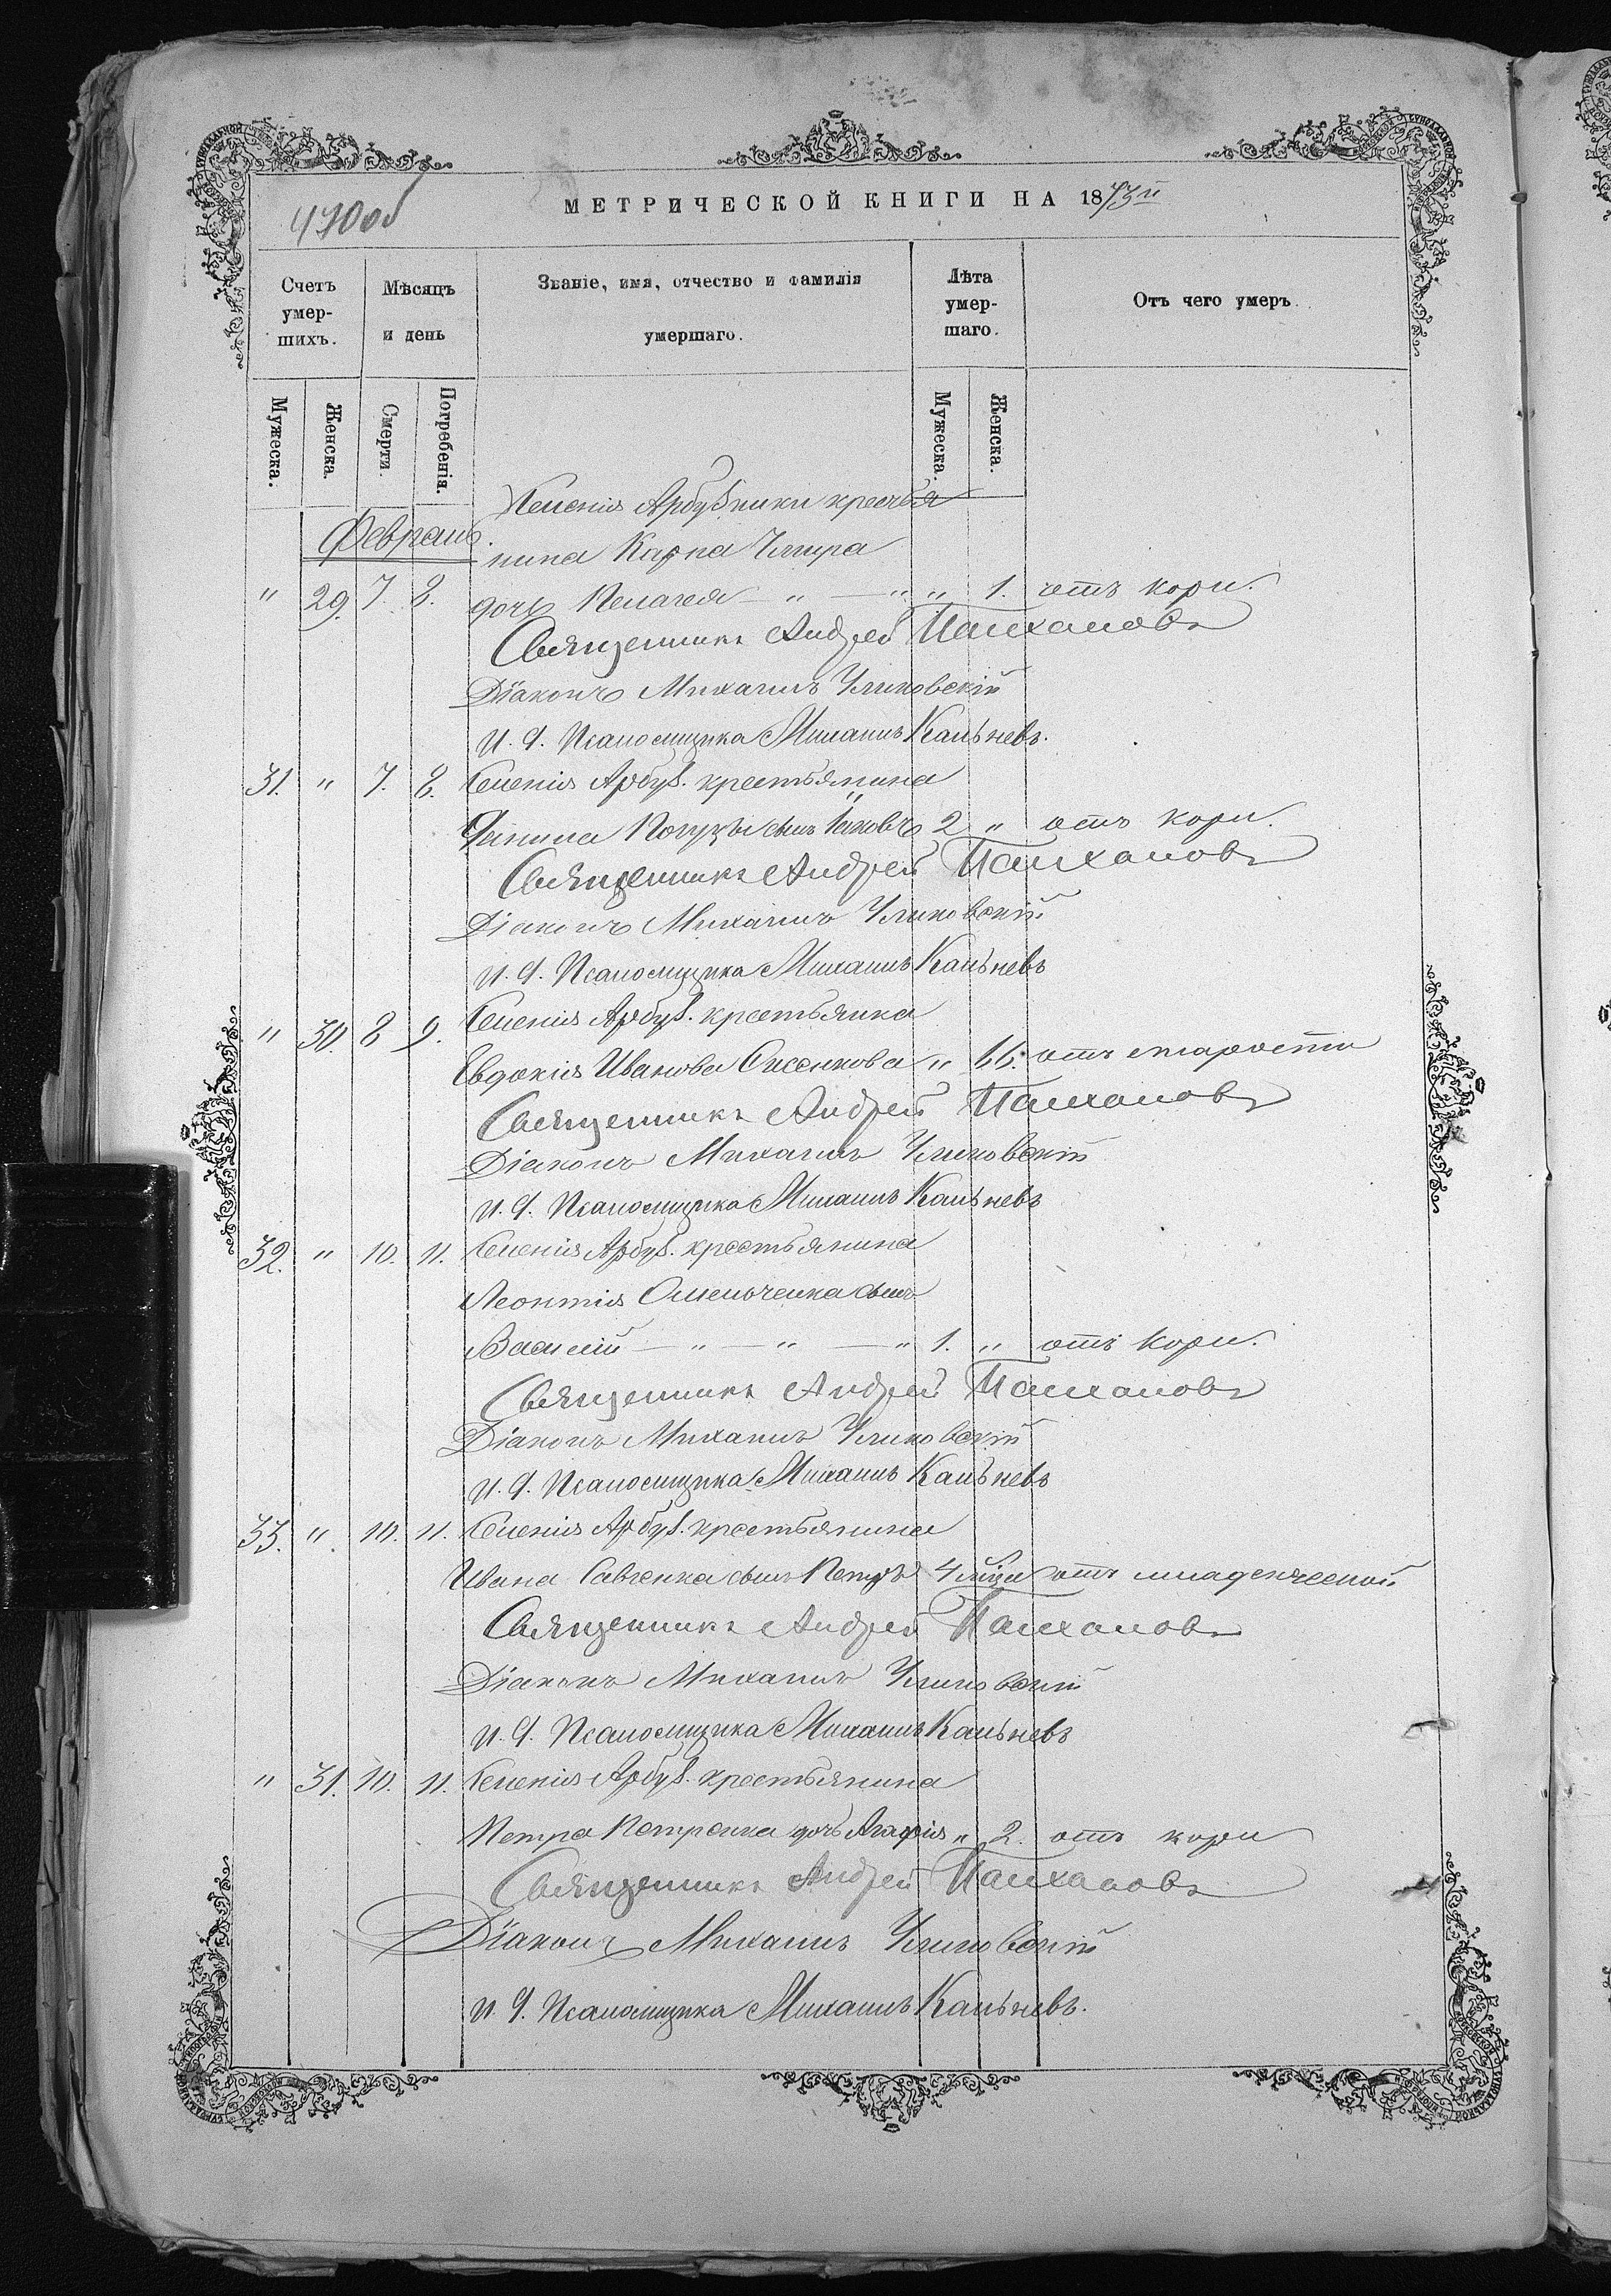 470об
МЕТРИЧЕСКОЙ КНИГИ НА 1873й
Счетъ умер-шихъ.
Мѣсяцъ и день
Званіе, имя, отчество и фамилія умершаго.
Лѣта умер-шаго.
Отъ чего умеръ.
Мужеска. Женска. Смерти. Погребенія. Мужеска. Женска.
Селенія Арбузинки крестья
Февраль.
нина Карпа
" 29. 7. 8. дочь Пелагея — " — " " 1. отъ кори.
Священникъ Андрей
Діаконъ Михаилъ
И. д. Псаломщика Михаилъ Кальневъ.
31. " 7. 8. Селенія Арбуз. крестьянина
сынъ Іаковъ 2 " отъ кори.
Священникъ Андрей
Діаконъ Михаилъ
И. д. Псаломщика Михаилъ Кальневъ
" 30. 8 9. Селенія Арбуз. крестьянка
Евдокія Иванова " отъ старости
Священникъ Андрей
Діаконъ Михаилъ
И. д. Псаломщика Михаилъ Кальневъ
32. " 10. 11. Селенія Арбуз. крестьянина
Леонтія Омельченка сынъ
Василій — " — " — " 1. " отъ кори.
Священникъ Андрей
Діаконъ Михаилъ
И. д. Псаломщика Михаилъ Кальневъ
33. " 10. 11. Селенія Арбуз. крестьянина
Ивана Савченка сынъ Петръ 4 мѣся отъ младенческой
Священникъ Андрей
Діаконъ Михаилъ
И. д. Псаломщика Михаилъ Кальневъ
" 31. 10. 11. Селенія Арбуз. крестьянина
Петра Петренка дочь Агафія " 2. отъ кори
Священникъ Андрей
Діаконъ Михаилъ
И. д. Псаломщика Михаилъ Кальневъ.